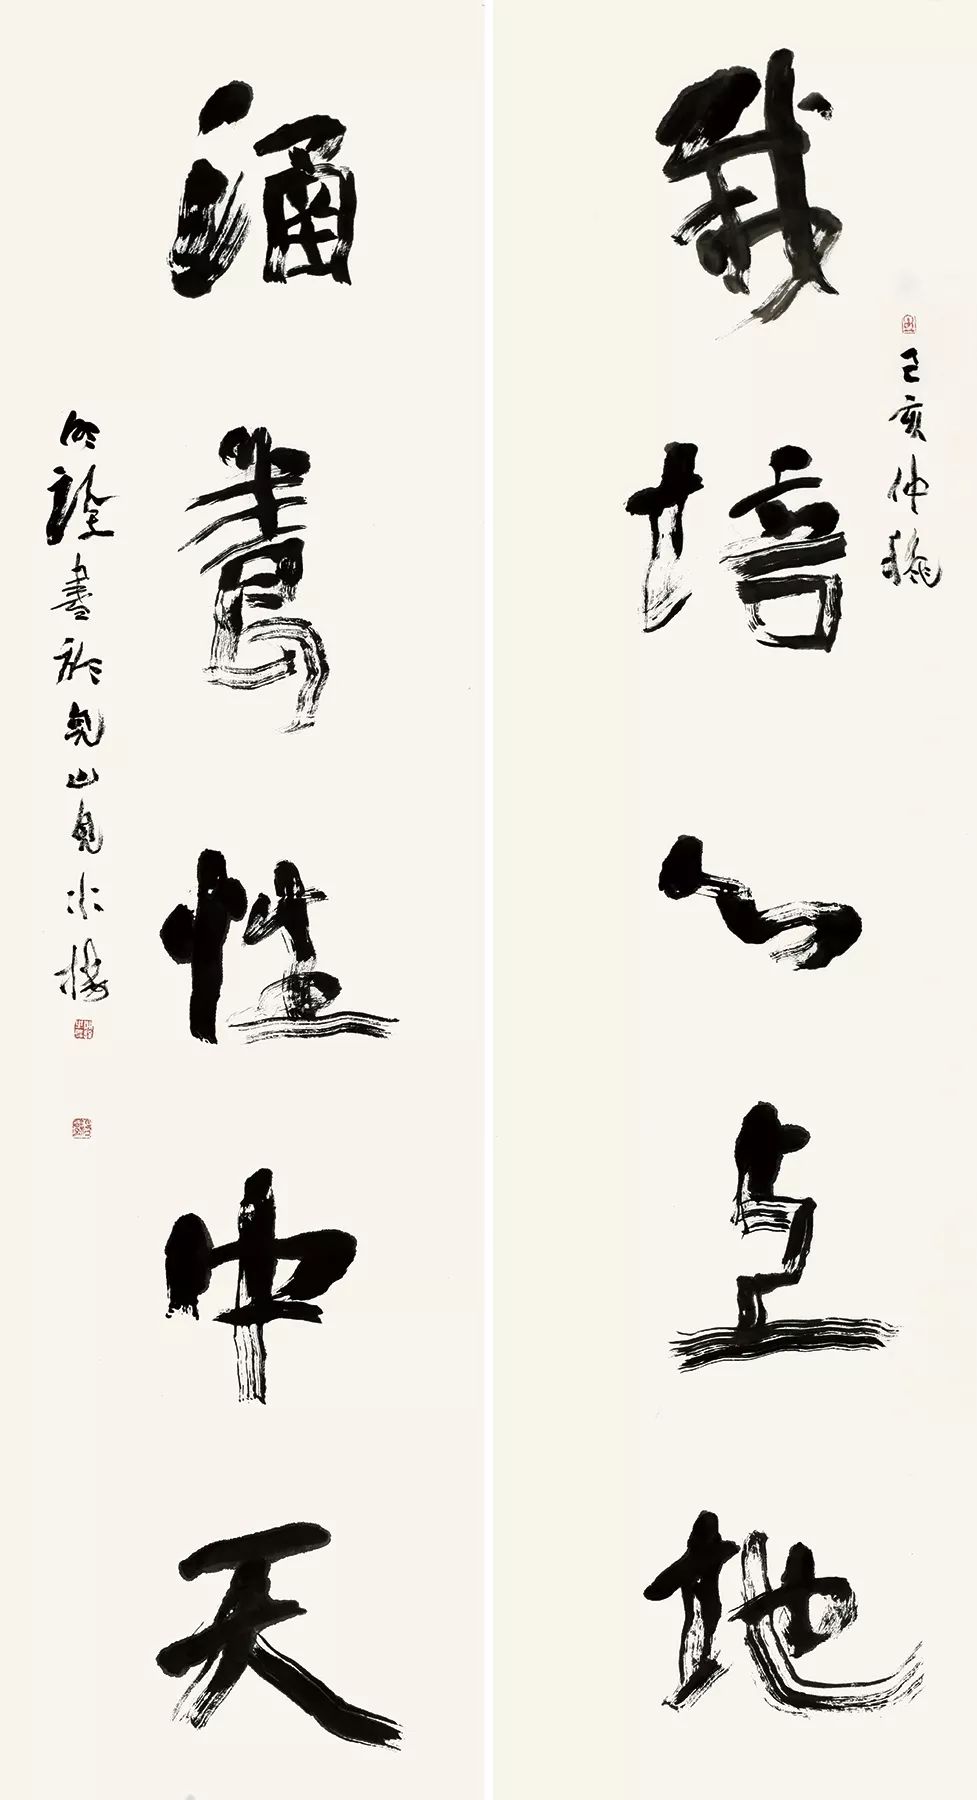 己亥仲秋
栽培心上地
涵養性中天
明詮書於見山見水樓